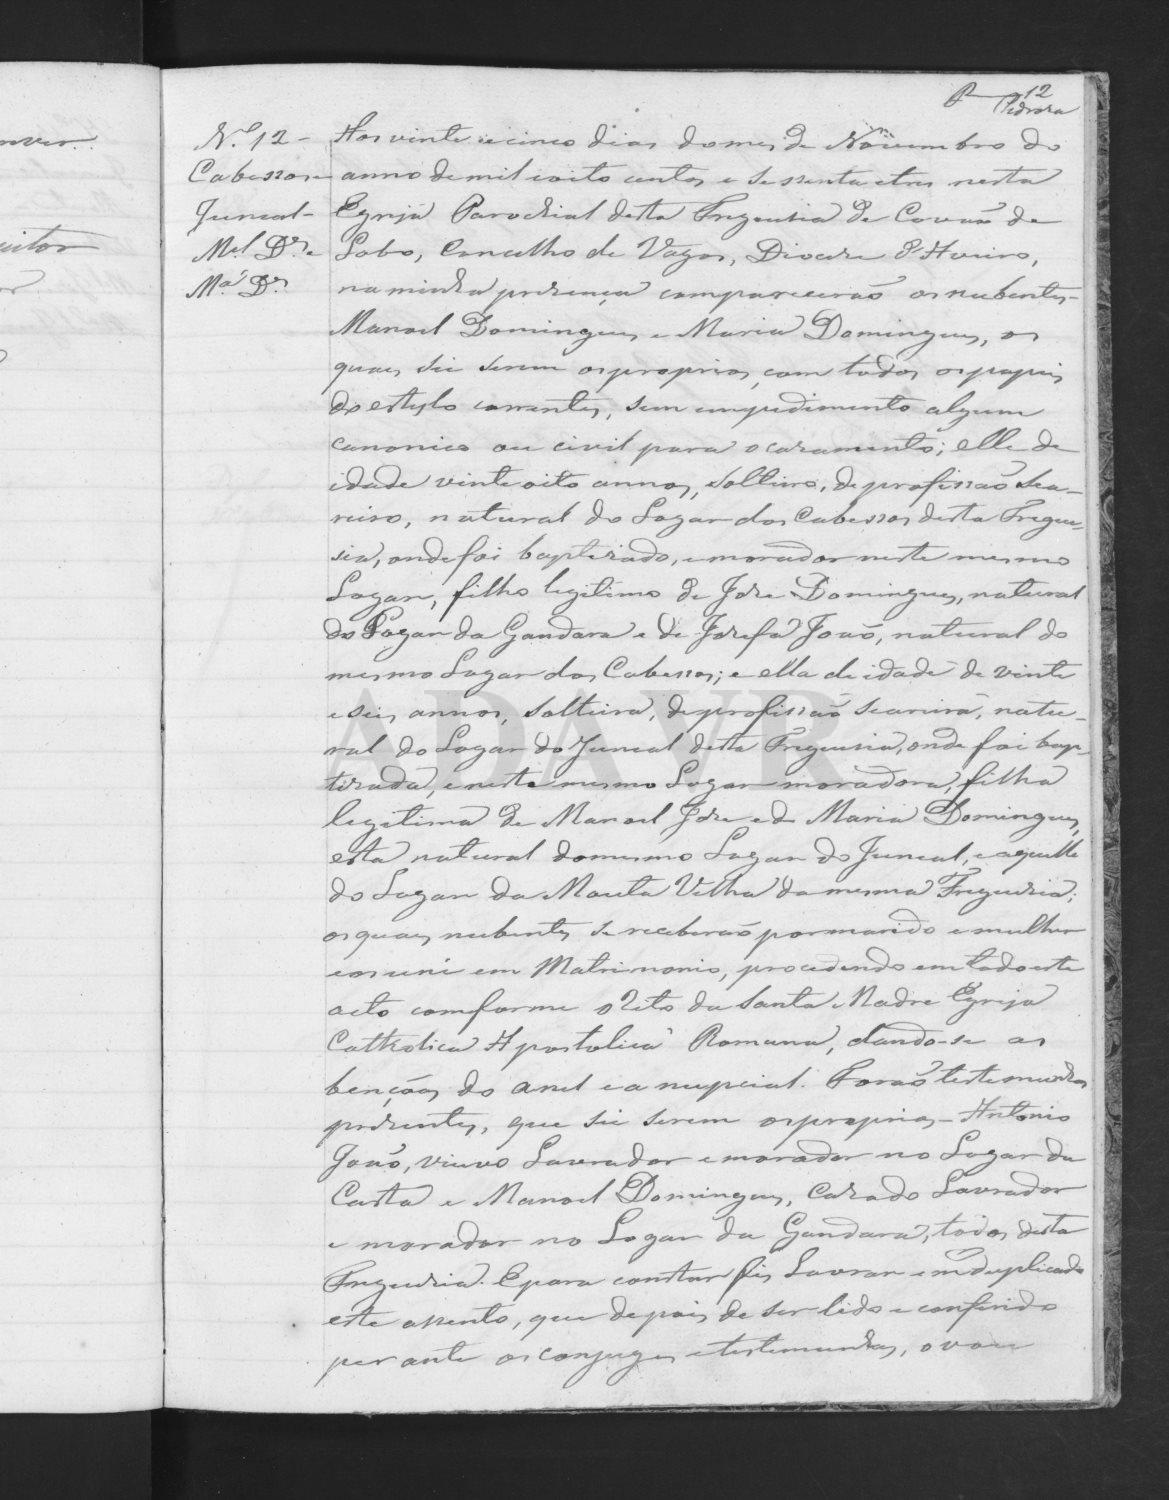 12
Pedroza
N.º 12 -
Cabessos e
Juncal -
Mel. D.es e
M.ª D.es
Aos vinte e cinco dias do mes de Novembro do
anno de mil e oito centos e sessenta e tres nesta
Egreja Parochial desta Freguesia de Covão de
Lobo, Concelho de Vagos, Diocese d'Aveiro,
na minha presença comparecerão os nubentes -
Manoel Domingues e Maria Domingues, os
quaes sei serem os proprios, com todos os papeis
do estylo correntes, sem empedimento algum
canonico ou civil para o casamento; elle de
idade vinte oito annos, solteiro, de profissão sea-
reiro, natural do Logar dos Cabessos desta Fregue-
sia, onde foi baptizado, e morador neste mesmo
Logar, filho legitimo de Jose Domingues, natural
do Logar da Gandara e de Josefa João, natural do
mesmo Logar dos Cabessos; e ella de idade de vinte
e seis annos, solteira, de profissão seareira, natu-
ral do Logar do Juncal desta Freguesia, onde foi bap-
tizada, e neste mesmo Logar moradora, filha
legitima de Manoel Jose e de Maria Domingues,
esta natural do mesmo Logar do Juncal, e aquelle
do Logar da Mouta Velha da mesma Freguesia;
os quaes nubentes se receberão por marido e mulher
e os uni em Matrimonio, procedendo em todo este
acto comforme o Rito da Santa Madre Egreja
Catholica Apostolica Romana, dando-se as
bençãos do anel e a nupcial. Forão testemunhas
presentes, que sei serem os proprios - Antonio
João, viuvo Lavrador e morador no Logar da
Costa e Manoel Domingues, Cazado Lavrador
e morador no Logar da Gandara, todos desta
Freguesia. E para constar fis Lavrar em duplicado
este assento, que depois de ser lido e conferido
perante os conjuges e testemunhas, o vou
ADAVR